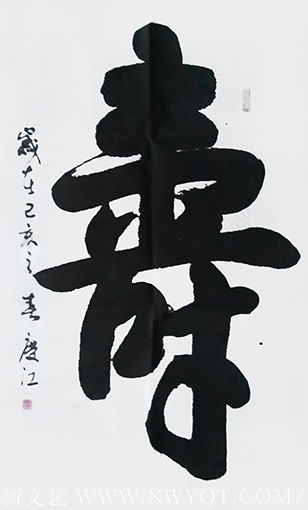 壽
歲在己亥之春慶江
新文艺 WWW.XWYQT.COM/